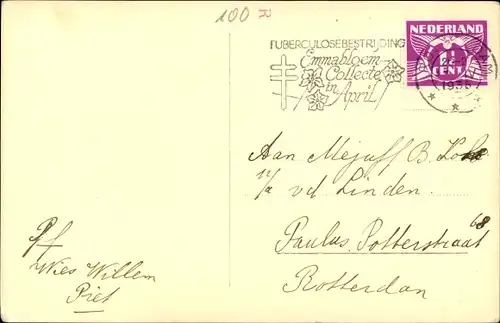 100
TUBERCULOSEBESTRIJDING
Emmabloem
Collecte
in April
NEDERLAND
1½
CENT
Aan Mejuff B.
v.d Linden.
Paulus Potterstraat 68
Rotterdam
Pf
Wies Willem
Piet